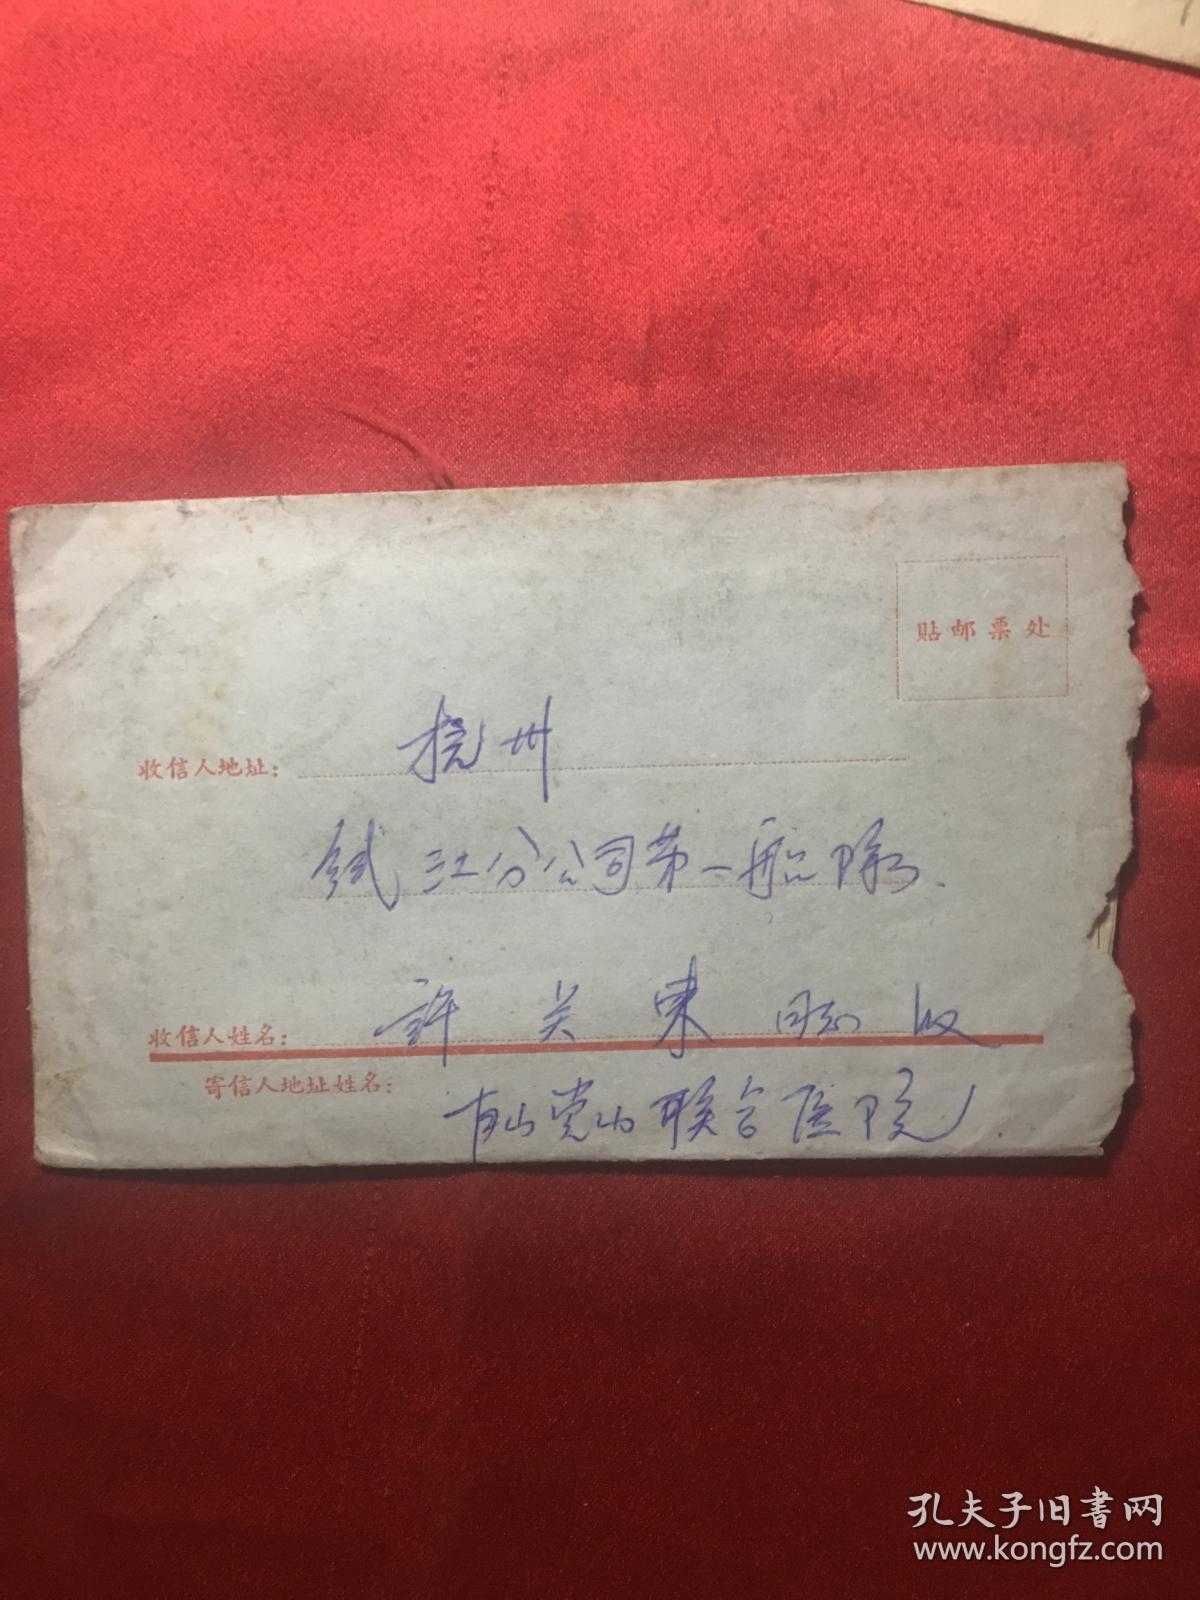 貼邮票处
收信人地址：杭州
钱江分公司第一船隊.
收信人姓名：許关東 同志 收
寄信人地址姓名：
肖山党山联合医院
孔夫子旧書网
www.kongfz.com